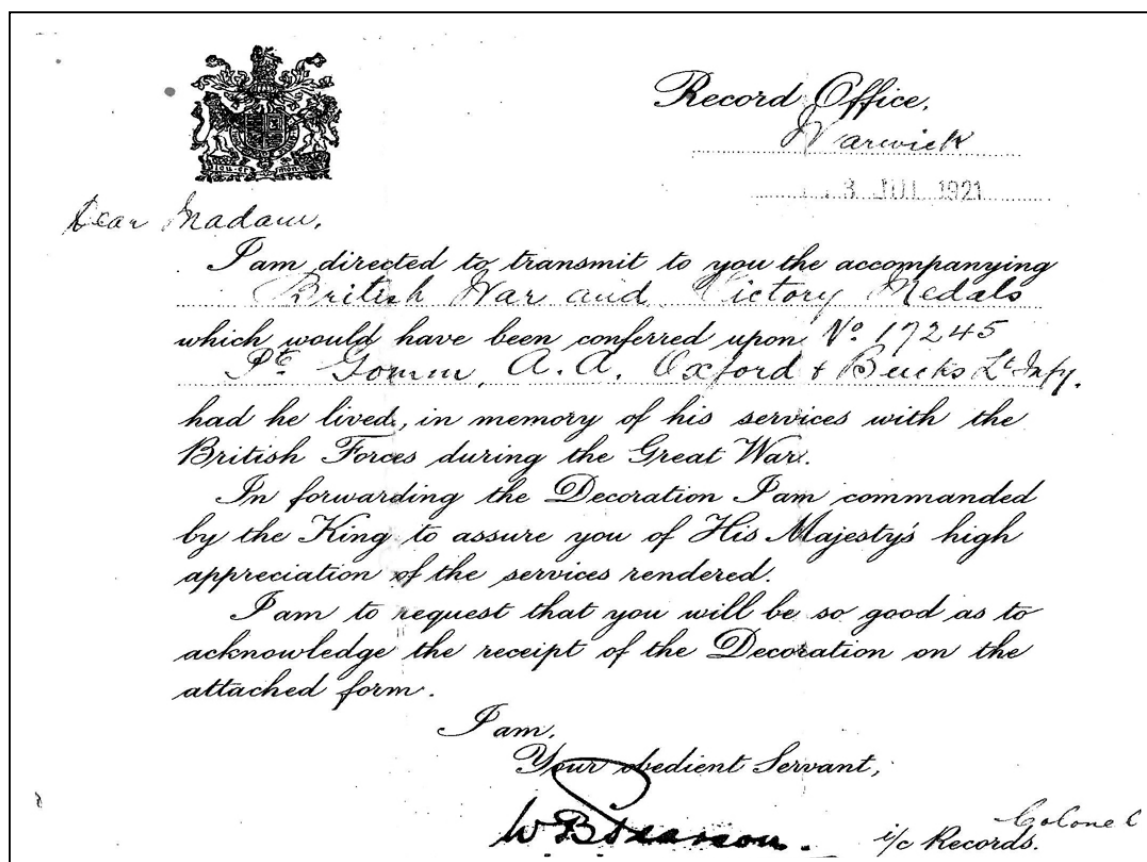 Record Office,
Warwick
3 JUL 1921
Dear Madam,
I am directed to transmit to you the accompanying
British War and Victory Medals
which would have been conferred upon No 17245
Pte Gomm, A.A. Oxford & Bucks Lt Infy.
had he lived, in memory of his services with the
British Forces during the Great War.
In forwarding the Decoration I am commanded
by the King to assure you of His Majesty's high
appreciation of the services rendered.
I am to request that you will be so good as to
acknowledge the receipt of the Decoration on the
attached form.
I am,
Your obedient Servant,
Colonel
i/c Records.